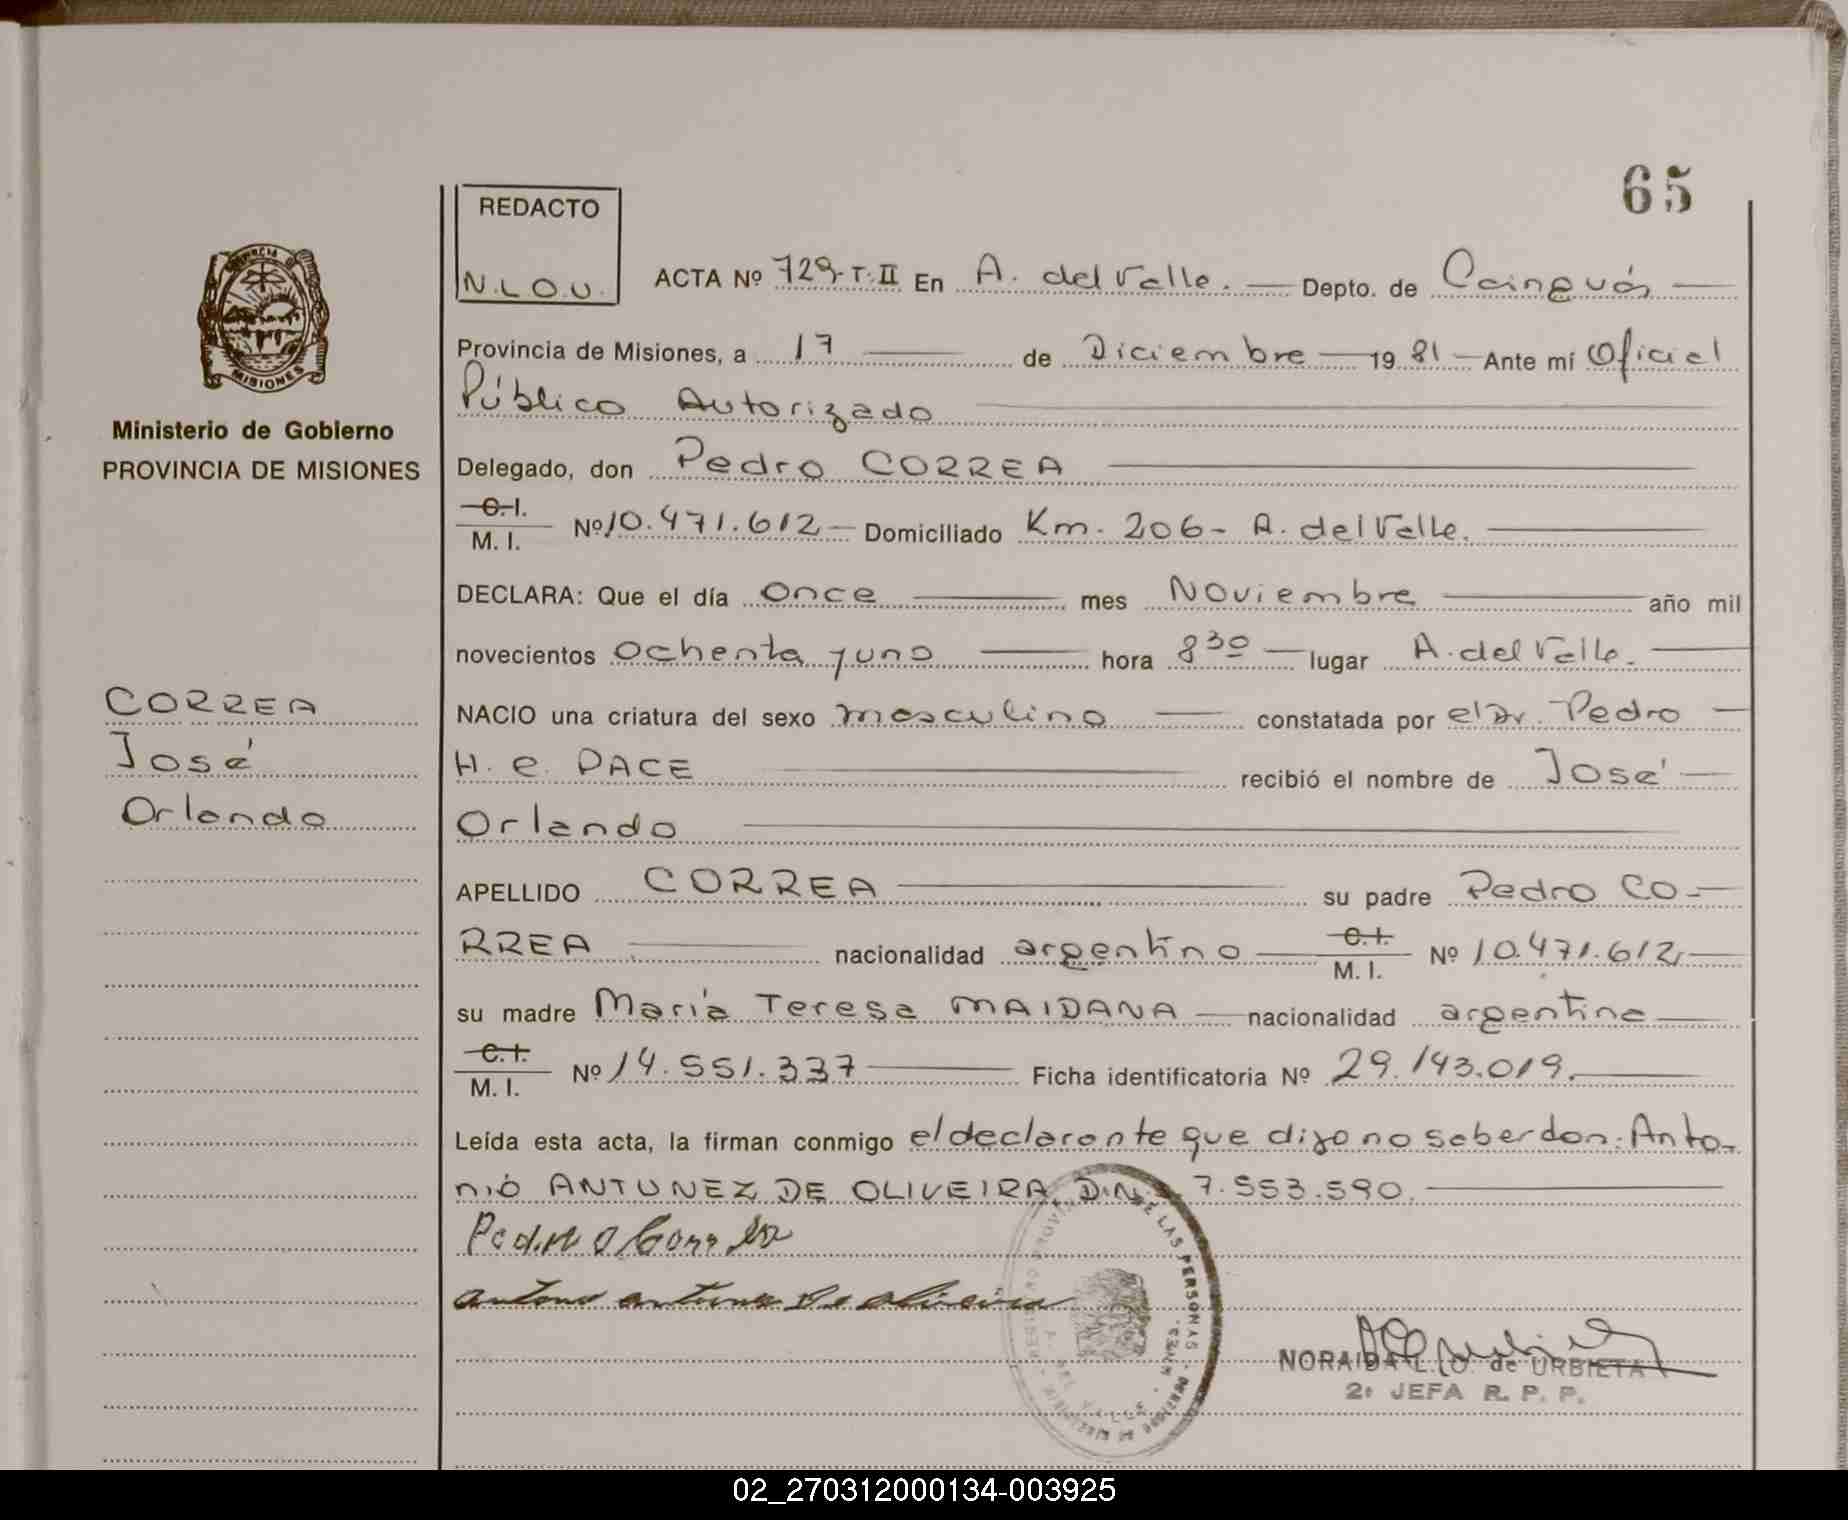 65
REDACTO
N.L.O.U.
ACTA Nº 729-T.II En A. del Valle. Depto. de Cainguás
Provincia de Misiones, a 17 de Diciembre 19 81 Ante mí Oficial
Público Autorizado
Delegado, don Pedro CORREA
C.I.
M. I. Nº 10.471.612 Domiciliado Km. 206- A. del Valle.
DECLARA: Que el día once mes Noviembre año mil
novecientos ochenta y uno hora 8 30 lugar A. del Valle.
NACIO una criatura del sexo masculino constatada por el Dr. Pedro
H. e. PACE recibió el nombre de José
Orlando
APELLIDO CORREA su padre Pedro CO-
RREA nacionalidad argentino C.I. M. I. Nº 10.471.612
su madre María Teresa MAIDANA nacionalidad argentina
C.I.
M. I. Nº 14.551.337 Ficha identificatoria Nº 29.143.019.
Leída esta acta, la firman conmigo el declarante que dijo no saber don: Anto-
nio ANTUNEZ DE OLIVEIRA, D.N. 7.553.590.
antonio antunez de oliveira
NORAIDA L. O. de URBIETA
2ª JEFA R. P. P.
DE LAS PERSONAS
A. DEL VALLE
PROVINCIA
MISIONES
Ministerio de Gobierno
PROVINCIA DE MISIONES
CORREA
José
Orlando
02_270312000134-003925